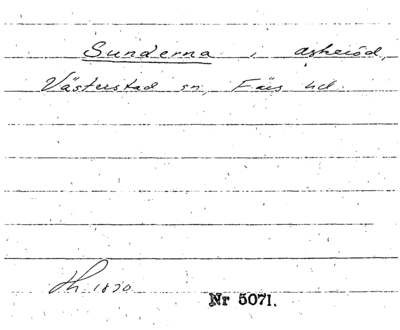 Sunderna, Askeröd,
Västerstad sn, Färs hd.
Lh. 1820
Nr 5071.